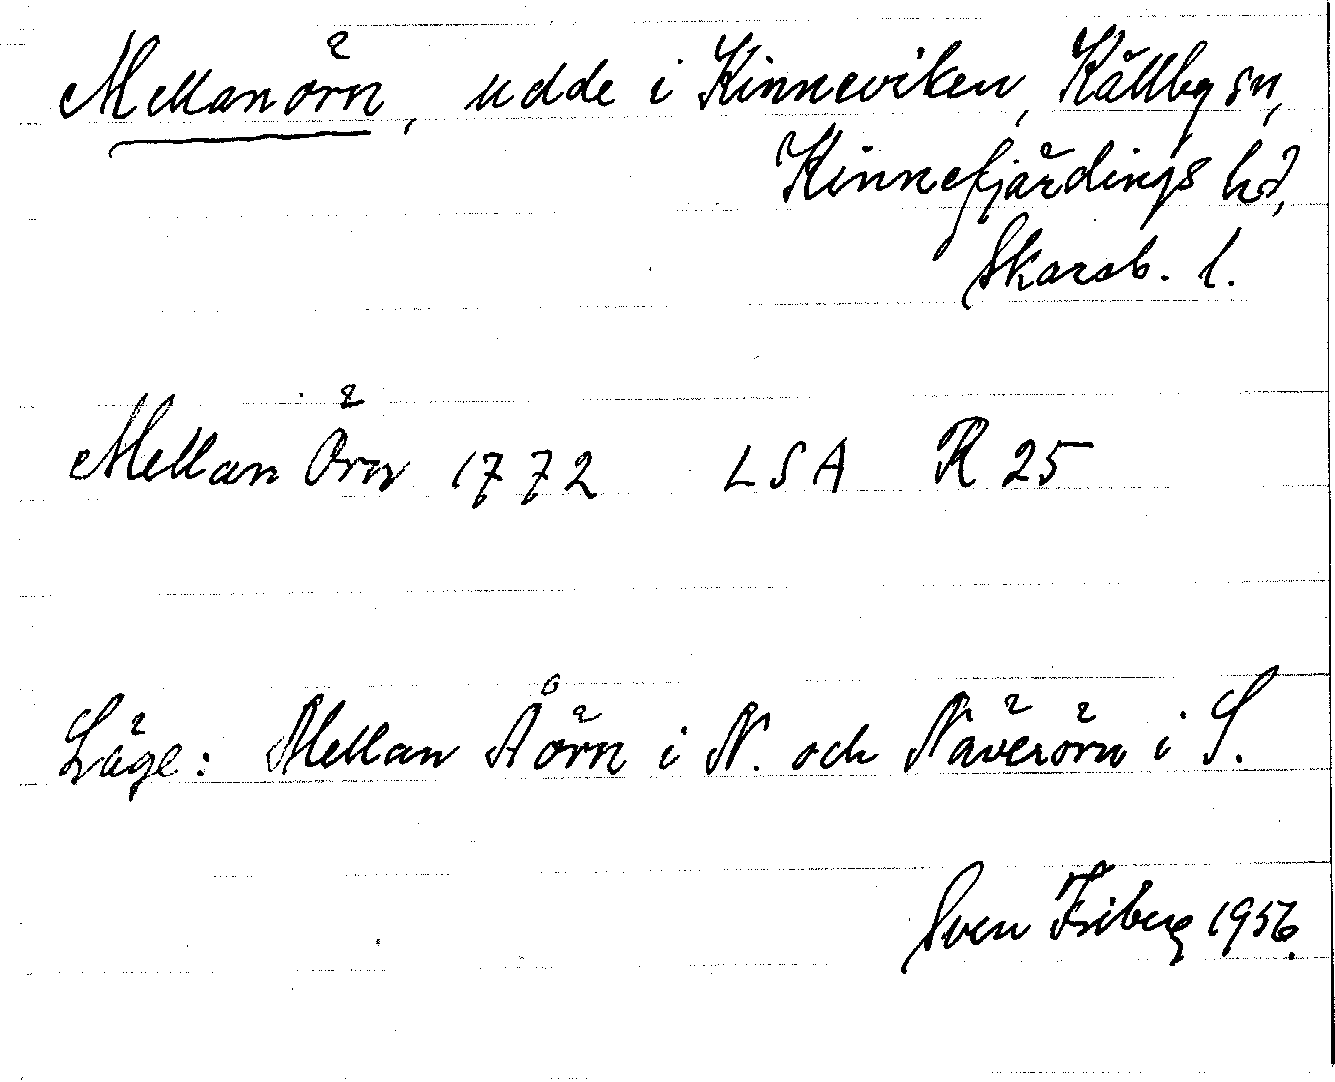 Mellanörn, udde i Kinneviken, Källby sn,
Kinnefjärdings hd,
Skarab. l.
Mellan Örn 1772 LSA R 25
Läge: Mellan Åörn i N. och Näverörn i S.
Sven Friberg 1956.